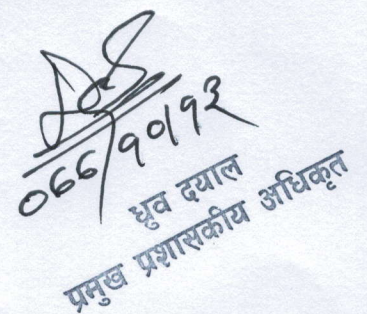 ०६६/१०/१२
ध्रुव दयाल
प्रमुख प्रशासकीय अधिकृत